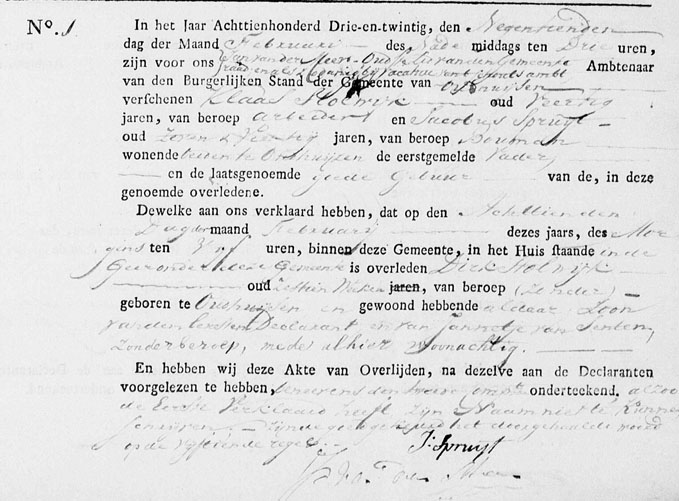 No. 1
In het Jaar Achttienhonderd Drie-en-twintig, den Negentienden
dag der Maand Februari des Nade middags ten Drie uren,
zijn voor ons van der Meer Oudste Lid van den Gemeente Ambtenaar
raad en als zoodanig bij vacature van het Ambt
van den Burgerlijken Stand der Gemeente van
verschenen Klaas Holwijk oud Veertig
jaren, van beroep arbeider en Jacobus Spruyt
oud Zeven & Veertig jaren, van beroep Bouman
wonende beiden te de eerstgemelde Vader,
en de laatsgenoemde goede Gebuur van de, in deze
genoemde overledene.
Dewelke aan ons verklaard hebben, dat op den Achttienden
Dag der maand Februari dezes jaars, des Mor
gens ten Vyf uren, binnen deze Gemeente, in het Huis staande in de
deze Gemeente is overleden Dirk Holwijk
oud Zestien Weken jaren, van beroep (Zonder)
geboren te en gewoond hebbende aldaar, Zoon
van den Eersten Declarant en van Jannetje van
Zonder beroep, mede alhier woonachtig.
En hebben wij deze Akte van Overlijden, na dezelve aan de Declaranten
voorgelezen te hebben, benevens den tweede Compt onderteekend. alzoo
de Eerste Verklaard heeft zijn Naam niet te Kunnen
Schrijven. Zijnde goedgekeurd het doorgehaalde woord
op de vyftiende regel.
J: Spruyt